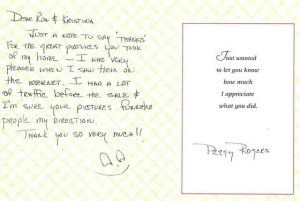 Dear Ron & Kristina
Just a note to say "Thanks"
for the great pictures you took
of my home — I was very
pleased when I saw them on
the internet. I had a lot
of traffic before the sale &
I'm sure your pictures funneled
people my direction.
Thank you so very much!!
Just wanted
to let you know
how much
I appreciate
what you did.
Peggy Rogers